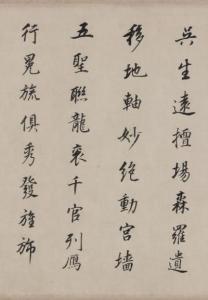 吳生遠擅場森羅遺
移地軸妙絕動宮墻
五聖聯龍衮千官列鴈
行冕旒俱秀發旌斾